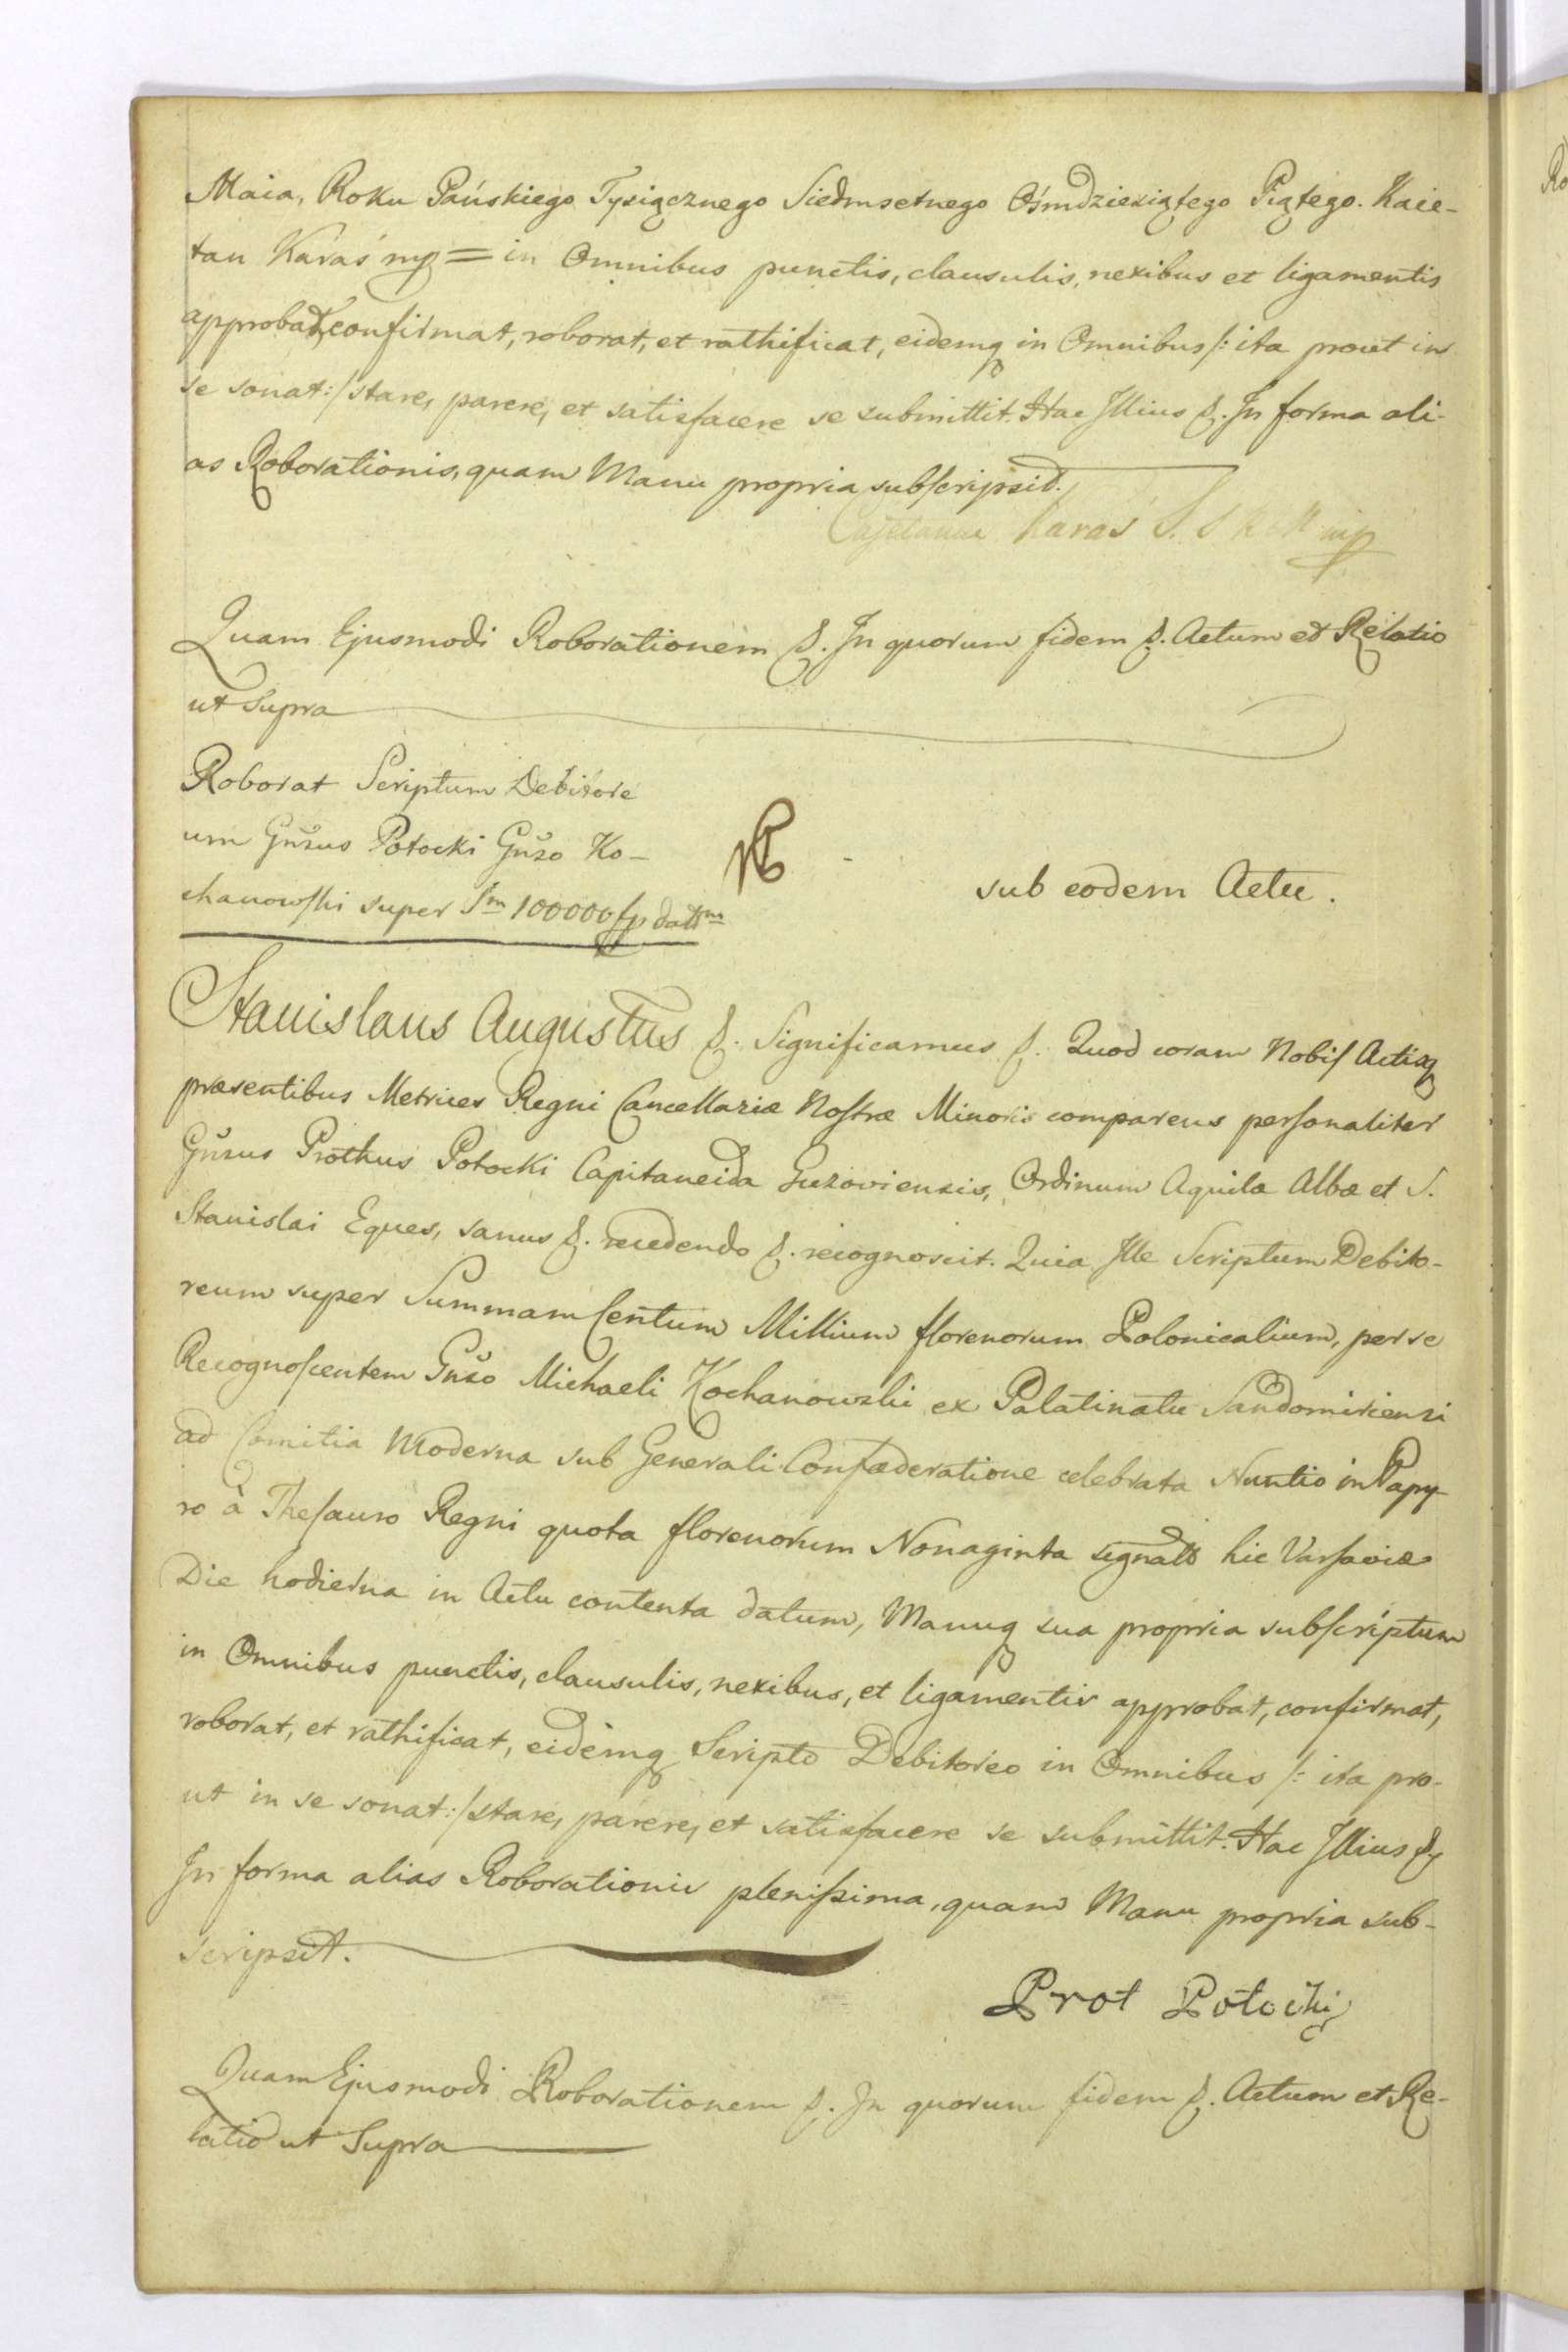 Maia, Roku Pańskiego Tysiącznego Siedmsetnego Ośmdziesiątego Piątego. Kaie-
tan Karaś mp = in Omnibus punctis, clausulis, nexibus et ligamentis
approbat, confirmat, roborat, et rathificat, eidemq in Omnibus /: ita prout in
se sonat :/ stare, parere, et satisfacere se submittit. Hac Illius &. In forma ali-
as Roborationis, quam Manu propria subscripsit.
Cajetanus Karaś mp
Quam Ejusmodi Roborationem &. In quorum fidem &. Actum et Relatio
ut Supra
Roborat Scriptum Debitore
um Gnŭsus Potocki Gnŭso Ko-
chanowski super Sm 100000 fp dattm
sub eodem Actu.
Stanislaus Augustus &. Significamus &. Quod coram Nobis Actisq
præsentibus Metrices Regni Cancellariæ Nostræ Minoris comparens personaliter
Gnŭsus Prothus Potocki Capitaneida Guzoviensis, Ordinum Aquilæ Albæ et S.
Stanislai Eques, sanus &. recedendo &. recognoscit. Quia Ille Scriptum Debito-
reum super Summam Centum Millium florenorum Polonicalium, per se
Recognoscentem Gnŭso Michaeli Kochanowski ex Palatinatu Sandomiriensi
ad Comitia Moderna sub Generali Confæderatione celebrata Nuntio in Papy-
ro à Thesauro Regni quota florenorum Nonaginta signatto hic Varsaviæ
Die hodierna in Actu contenta datum, Manuq sua propria subscriptum
in Omnibus punctis, clausulis, nexibus, et ligamentis approbat, confirmat,
roborat, et rathificat, eidemq Scripto Debitoreo in Omnibus /: ita pro-
ut in se sonat :/ stare, parere, et satisfacere se submittit. Hac Illius &
In forma alias Roborationis plenissima, quam Manu propria sub-
scripsit.
Prot Potocki
Quam Ejusmodi Roborationem &. In quorum fidem &. Actum et Re-
latio ut Supra